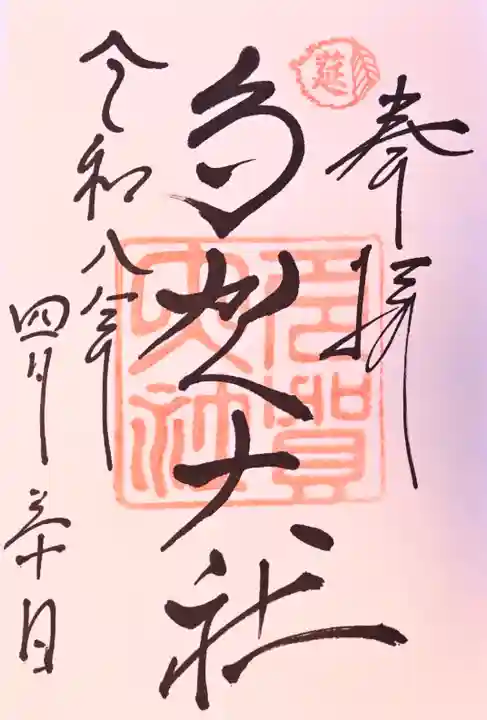 奉拝
莚
多賀大社
多賀大社
令和八年
四月三十日